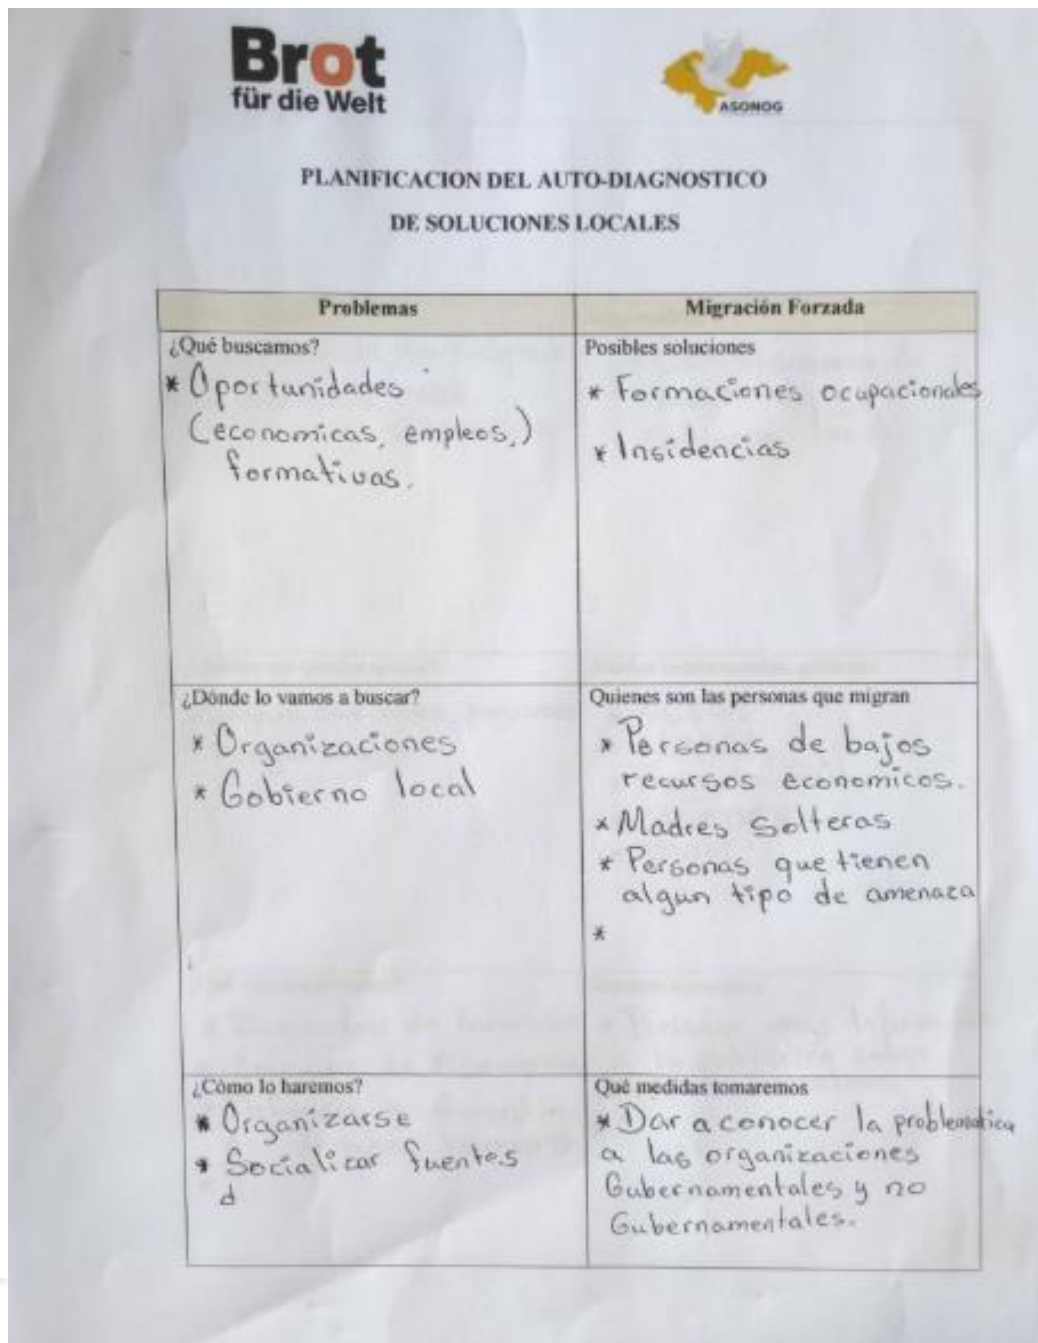 Brot
für die Welt
ASONOG
PLANIFICACION DEL AUTO-DIAGNOSTICO
DE SOLUCIONES LOCALES
Problemas
Migración Forzada
¿Qué buscamos?
* Oportunidades
(economicas, empleos,)
formativas.
Posibles soluciones
* Formaciones ocupacionales
* Insidencias
¿Dónde lo vamos a buscar?
* Organizaciones
* Gobierno local
Quienes son las personas que migran
* Personas de bajos
recursos economicos.
* Madres Solteras
* Personas que tienen
algun tipo de amenaza
*
¿Cómo lo haremos?
* Organizarse
* Socializar fuentes
d
Qué medidas tomaremos
* Dar a conocer la problematica
a las organizaciones
Gubernamentales y no
Gubernamentales.